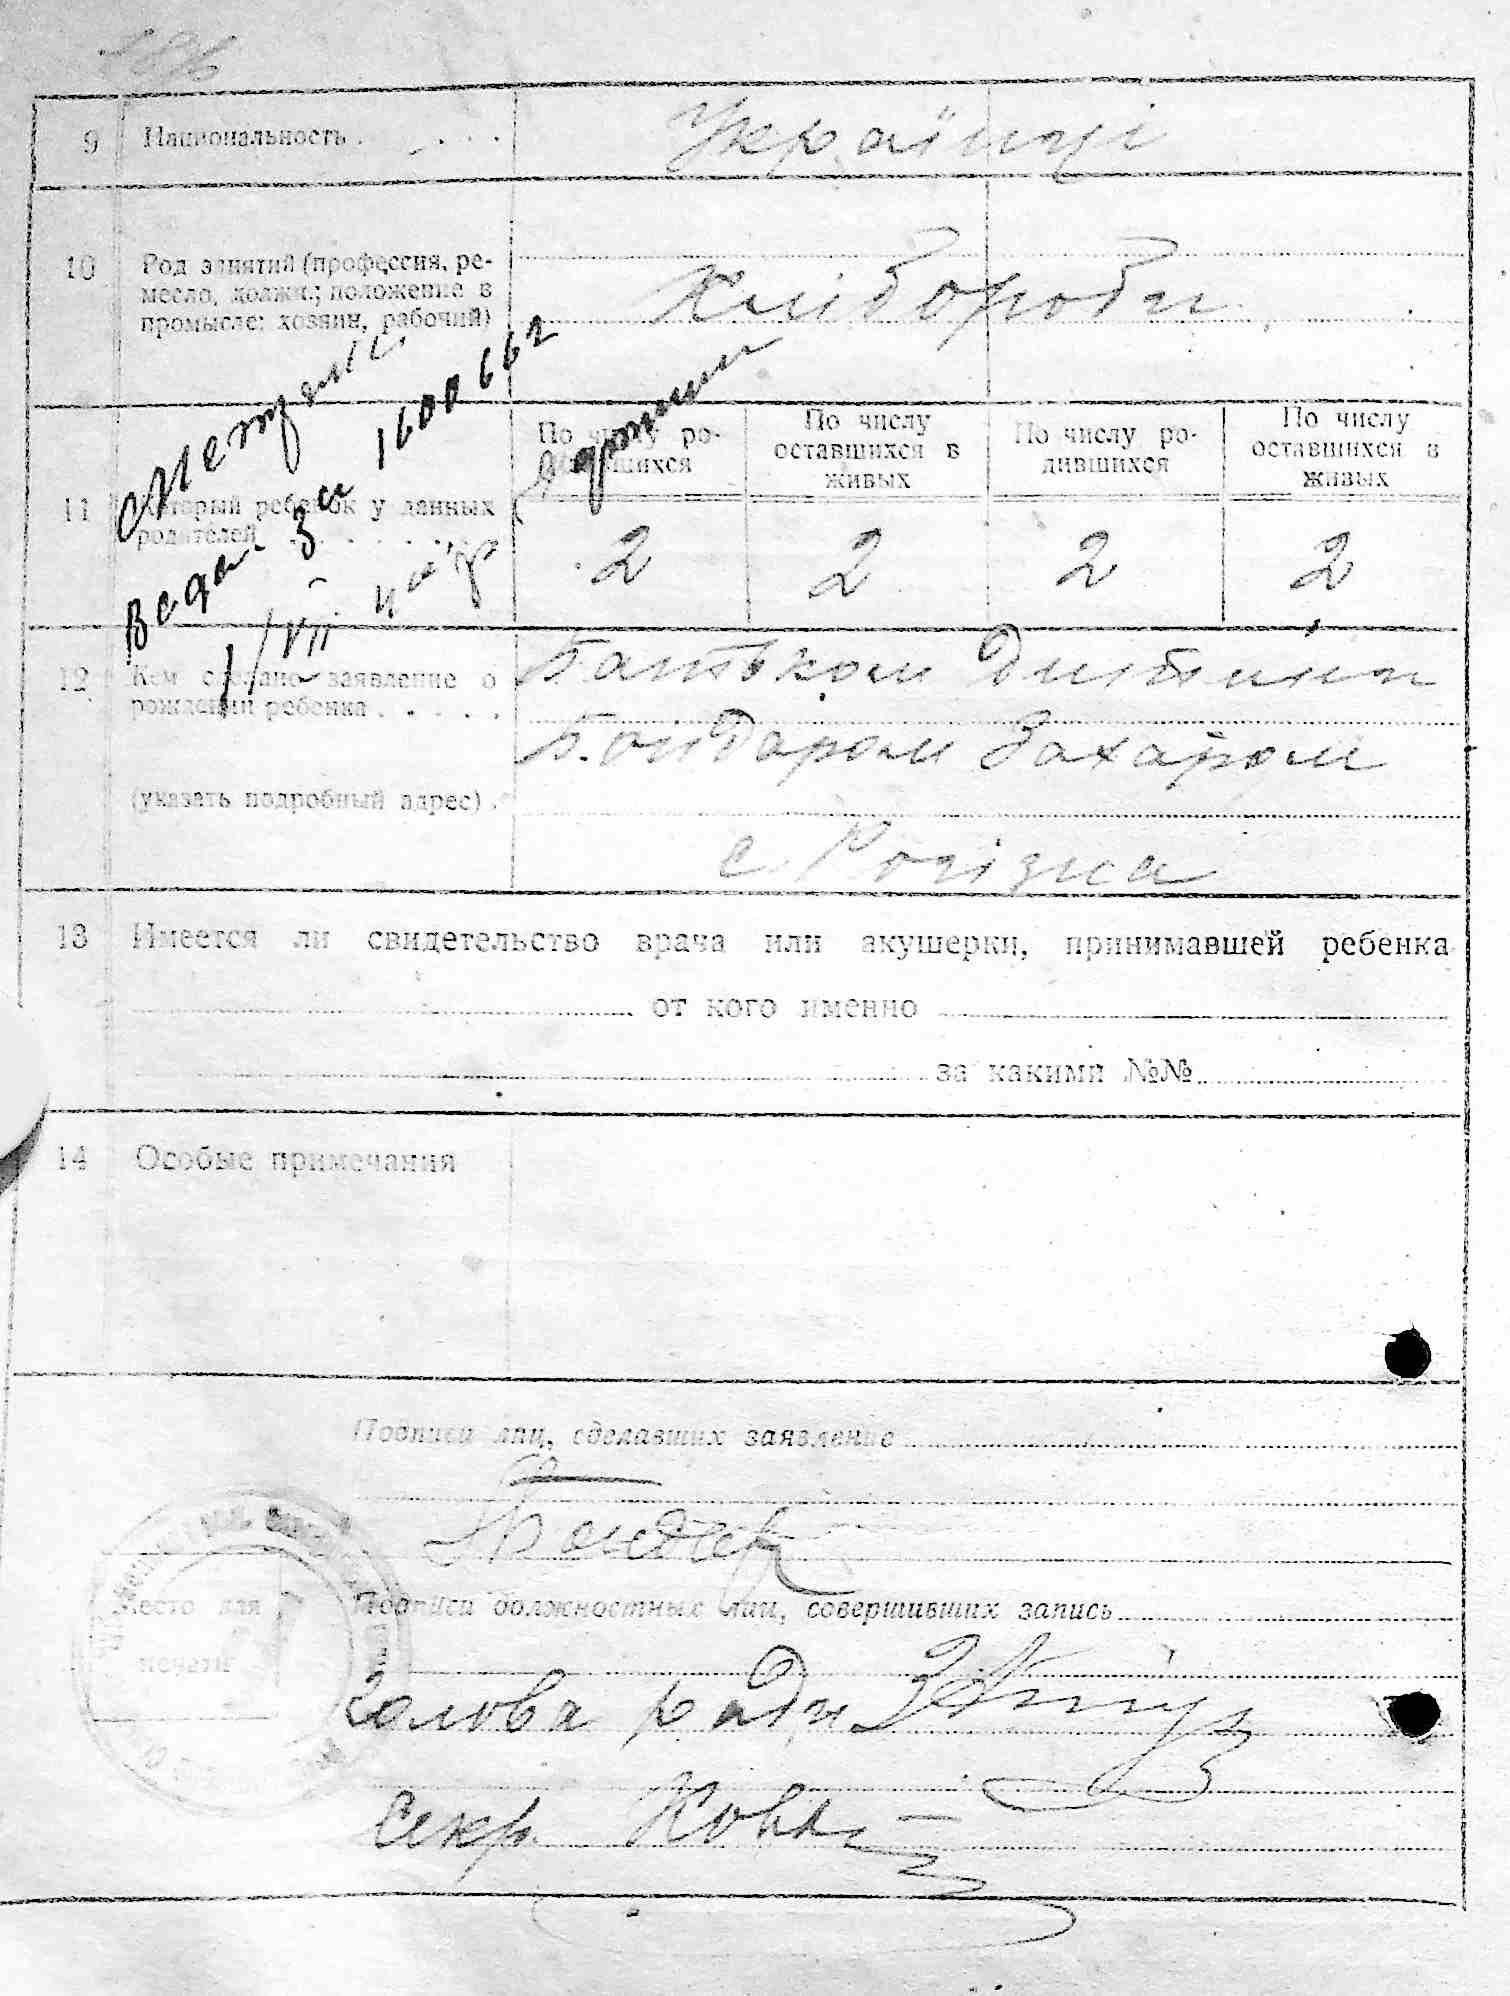 186
9 Национальность . . . . .
Українці
10 Род занятий (профессия, ре-
месло, должн.; положение в
промысле: хозяин, рабочий)
Хлібороби
Метрика
Видан за 1600662
1/VII
По числу ро-
дившихся
По числу
оставшихся в
живых
По числу ро-
дившихся
По числу
оставшихся в
живых
11 Который ребенок у данных
родителей . . . . . .
2 2 2 2
12 Кем сделано заявление о
рождении ребенка . . . . .
(указать подробный адрес) .
Батьком Дитини
Бондаром Захаром
с.
13 Имеется ли свидетельство врача или акушерки, принимавшей ребенка
от кого именно
за какими №№
14 Особые примечания
Подписи лиц, сделавших заявление
Бондар
Место для
печати
Подписи должностных лиц, совершивших запись
Голова ради
Секр.